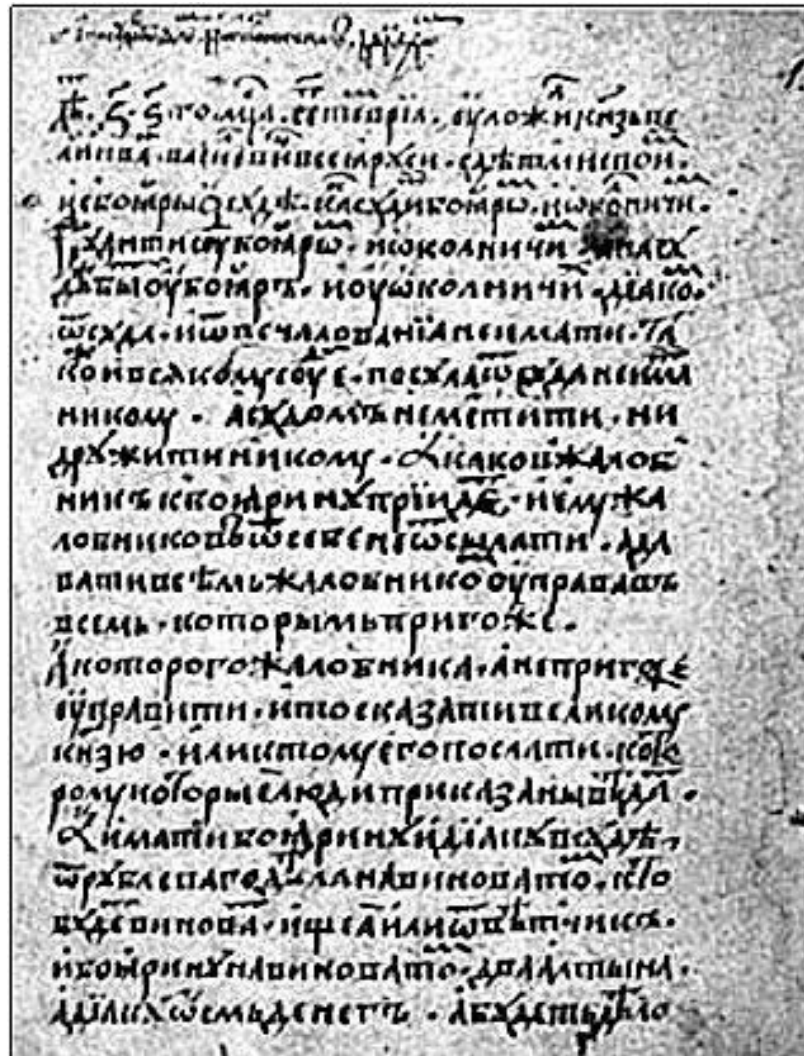 лѣ. ҂ꙅ. ꙅ. го. мцⷭ҇а. сеⷫ҇тевріа. оуложи кн҃зь ве
ликіи ива вⷩ҇ васи́льевиⷱ҇ всеа рꙋси. с дѣтми свои.
и с боꙗры ѡ сꙋдѣ. каⷦ҇ сꙋди боꙗрѡ. и ѡколничи.
Сꙋдити сꙋ боꙗрѡ. и ѡколничи. а на сꙋ
дѣ бы оу боꙗръ. и оу ѡколничи. діако.
ѿ сꙋда. и ѿ печалованіа не имати. та
кѡ и всякому сѹⷣе. посꙋла ѿ сꙋда не има
никому. а сꙋдомъ не мстити. ни
дрꙋжити никому. А каков жалоб
никъ к боꙗринꙋ прїиде. и ему жа
лобниковъ ѿ себе не ѿсылати. а да
вати всѣмь жалобнико оуправа въ
всемь. которымь пригоже.
А которого жалобника. а не пригоже
оуправити. и то сказати великому
кн҃зю. или к тому его послати. ко
рому которые люди приказаны вѣда.
А имати боꙗринꙋ и діакꙋ в сꙋдѣ
ѿ рꙋблева го дѣла на виновато. кто
бꙋде винова. ищеа или ѿвѣтчикъ.
и боꙗринꙋ на виновато. два алтына.
а діакꙋ ѡсмь денегъ. а бꙋдеть дѣло